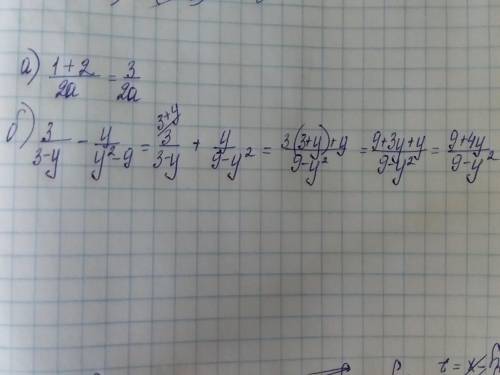 а) (1+2)/(2a) = 3/(2a)
б) 3/(3-y) - y/(y²-9) = 3^(3+y)/(3-y) + y/(9-y²) = (3(3+y)+y)/(9-y²) = (9+3y+y)/(9-y²) = (9+4y)/(9-y²)